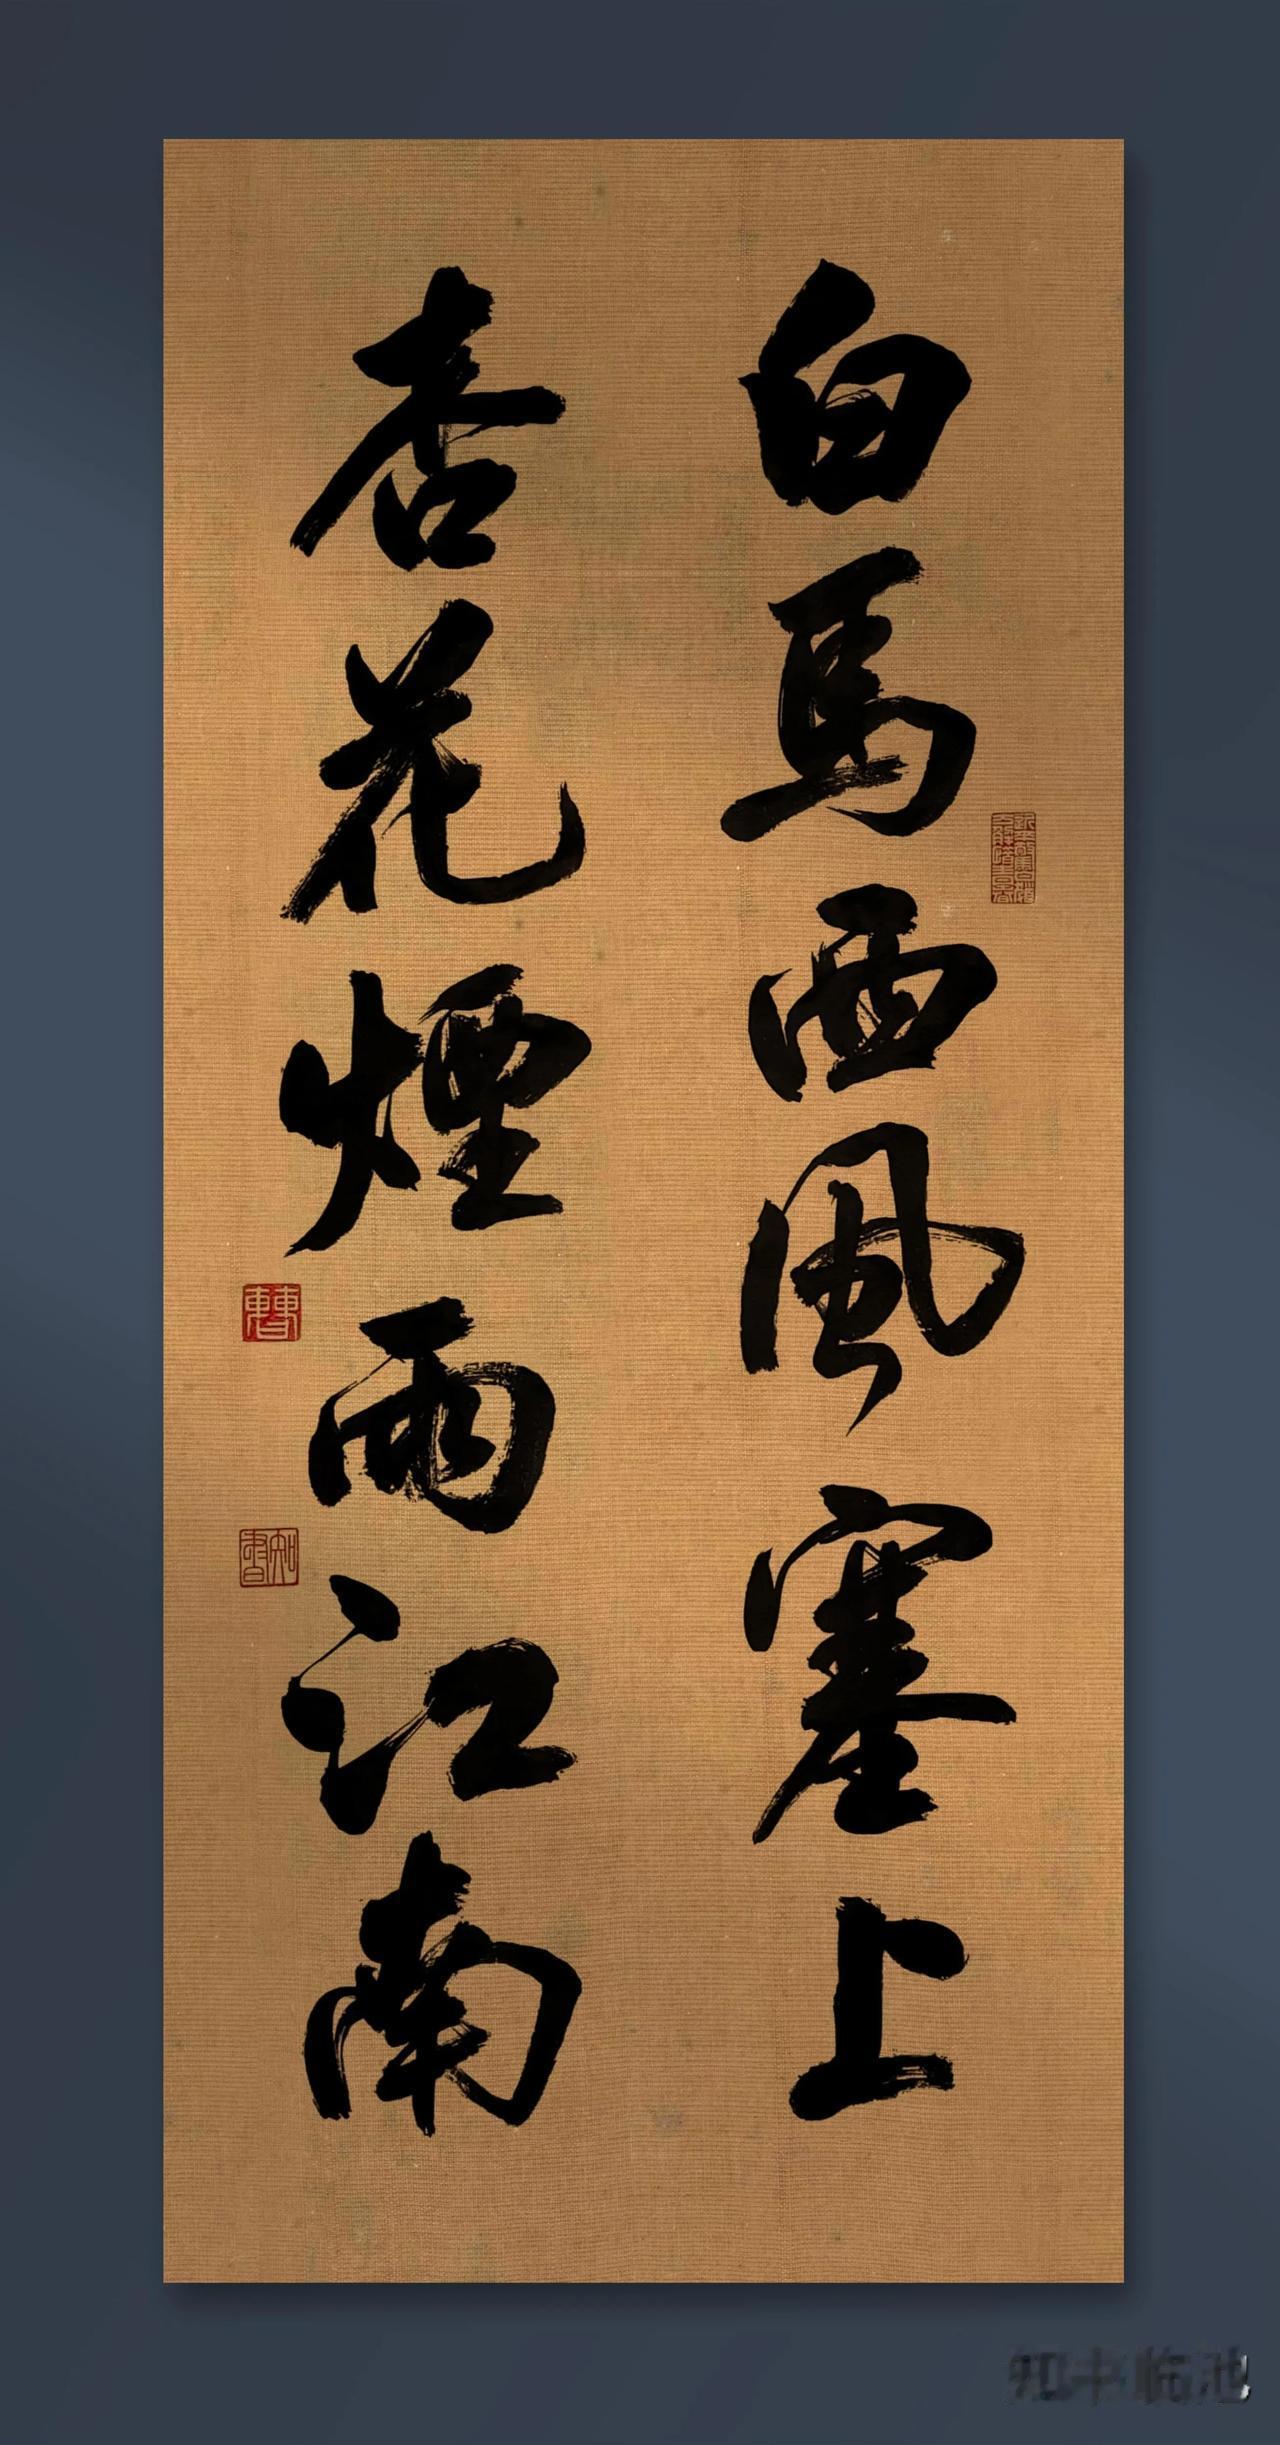 白馬西風塞上
杏花煙雨江南
知书
知书临池